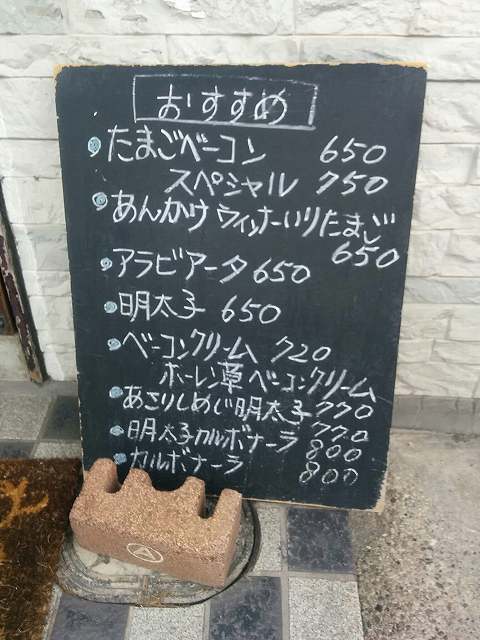 おすすめ
たまごベーコン 650
スペシャル 750
あんかけウィンナーいりたまご
650
アラビアータ 650
明太子 650
ベーコンクリーム 720
ホーレン草ベーコンクリーム
あさりしめじ明太子 770
770
明太子カルボナーラ 800
カルボナーラ 800